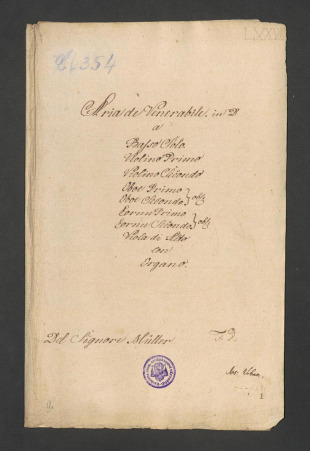 LXXVI
354
Aria de Venerabile. in D.
a
Basso Solo.
Violino Primo
Violino Secondo
Oboe Primo
Oboe Secondo } obl:
Cornu Primo
Cornu Secondo } obl:
Viola di Alto
con
Organo.
Del Signore Müller